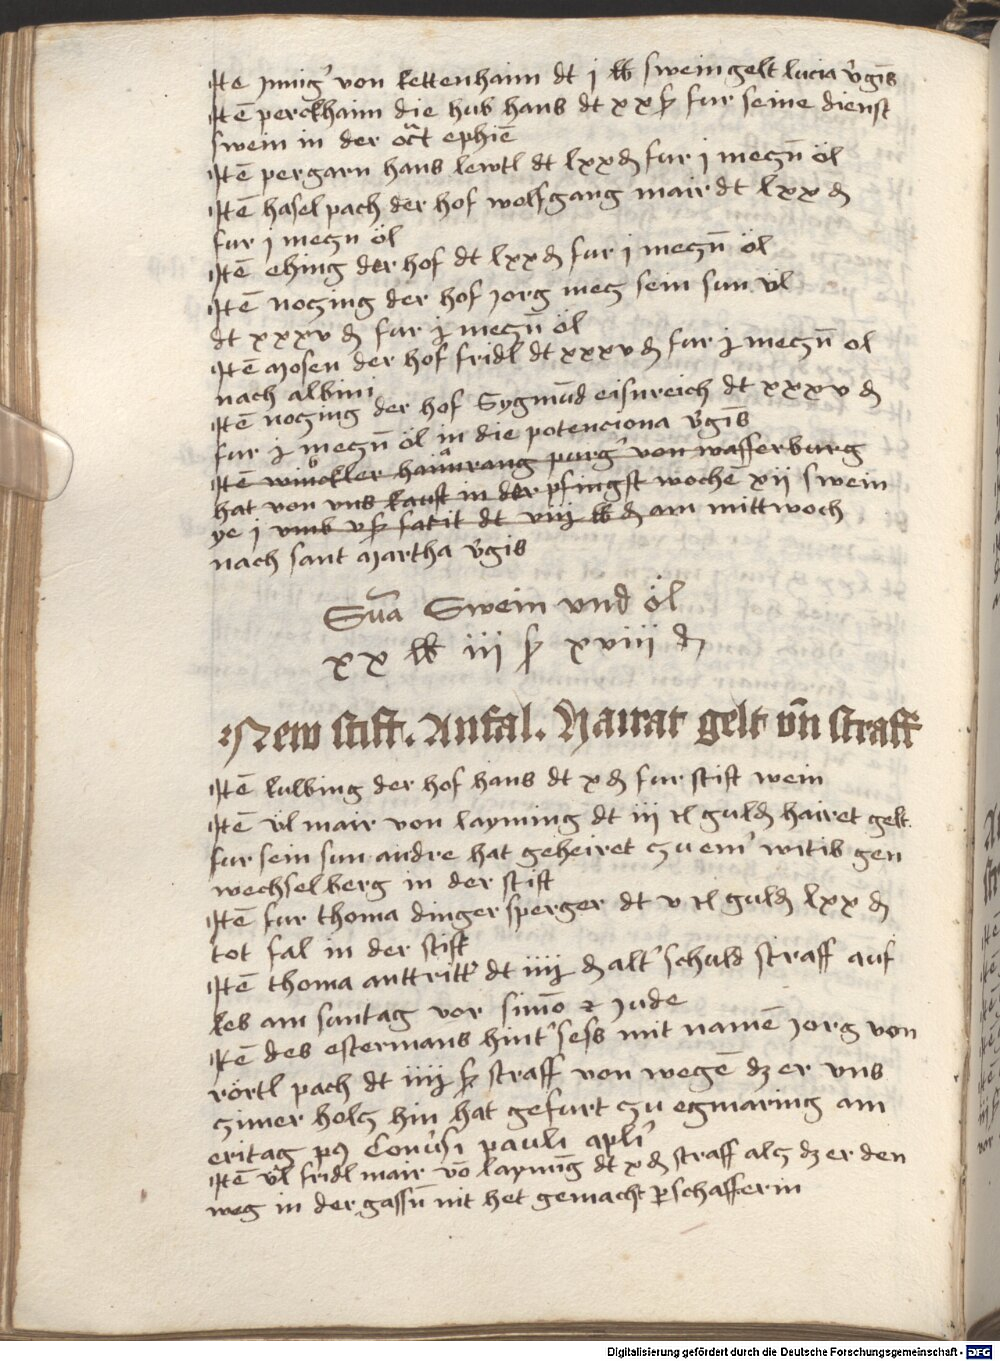 Itē Jnnig' von kettenhaim dt j lb sweingelt lucia v'gīs
Itē perckhaim die hub hans dt xx ß fur seine dienst
swein in der oct ephiē
Itē pergarn hans lewtl dt lxx ₰ fur j meczn̄ öl
Itē haselpach der hof wolfgang mair dt lxx ₰
fur j meczn öl
Itē ehing der hof dt lxx ₰ fur j meczn̄ öl
Itē noczing der hof Jorg mecz sein sun vl
dt xxxv ₰ fur j meczn̄ öl
Itē Mosen der hof fridl dt xxxv ₰ fur j meczn̄ ol
nach albini
Itē noczing der hof Sygmūd eisnreich dt xxxv ₰
fur j meczn̄ öl in die potenciona v'gīs
Itē winckler purg' von wasserburg
hat von vns kauft in der pfingst wochē xij swein
ye j vmb facit dt viij lb ₰ am mittwoch
nach sant Martha v'gis
Sūa Swein vnd öl
xx lb iii ß xviii ₰
New stift. Anfal. Hairat gelt vn̄ straff
Itē kulbing der hof hans dt x ₰ fur stift wein
Itē vl mair von layming dt iij rl guld₰ hairet gelt
fur sein sun andre hat geheiret zu ein' witib gen
wechselberg in der stift
Itē fur thoma dingersperger dt v rl guld₰ lxx ₰
tot fal in der stift
Itē thoma anttritt' dt iiij ₰ alt' schuld straff auf
leb am suntag vor simō & Jude
Itē des estermans hint'sess mit namē Jorg von
rörtlpach dt iiij ß straff von wegē dz er vns
zimer holcz hin hat gefurt zu egmaring am
eritag p9 Conv'si pauli apli'
Itē vl fridl mair vō laymīg dt x ₰ straff alcz dz er den
weg in der gassn̄ nit het gemacht p schafferin
Digitalisierung gefördert durch die Deutsche Forschungsgemeinschaft - DFG